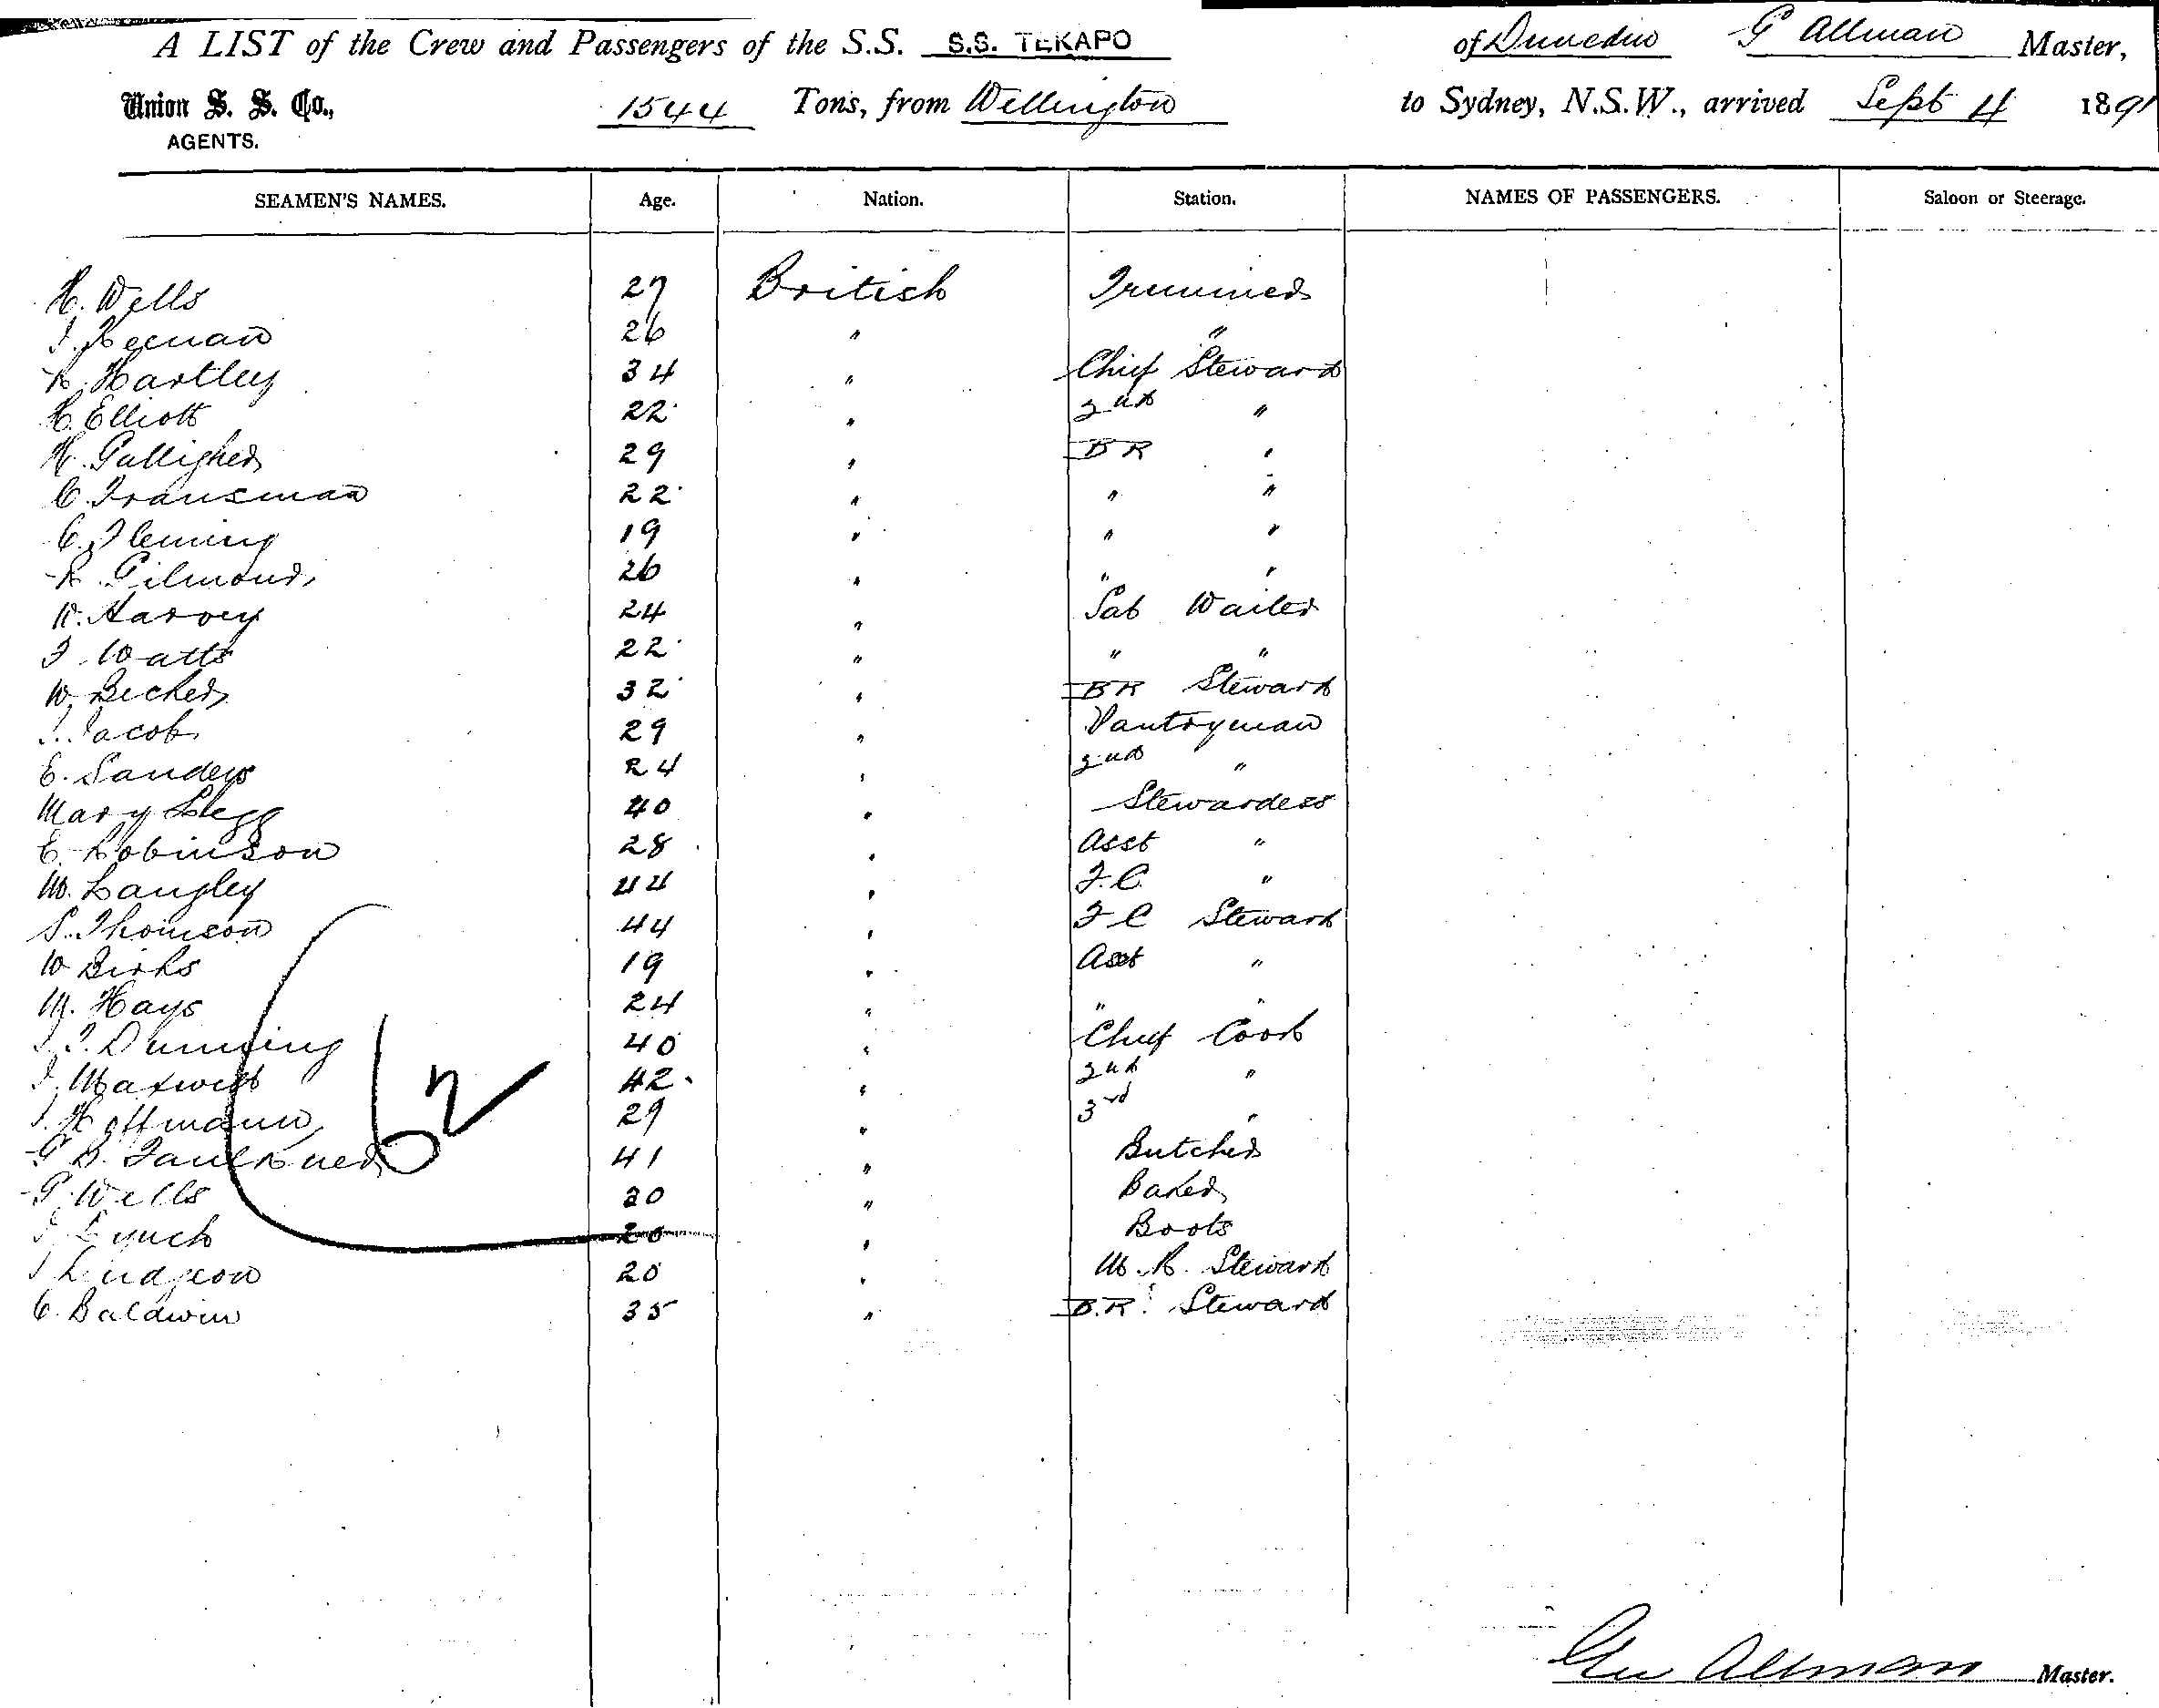 A LIST of the Crew and Passengers of the S.S. S.S. TEKAPO of Dunedin G Allman Master,
Union S. S. Co., AGENTS. 1544 Tons, from Wellington to Sydney, N.S.W., arrived Sept 4 1891
SEAMEN'S NAMES. Age. Nation. Station. NAMES OF PASSENGERS. Saloon or Steerage.
H. Wells 27 British Trimmer
J. Keenan 26 " "
R. Hartley 34 " Chief Steward
H. Elliott 22 " 2nd "
H. Galligher 29 " BR "
C. Fransman 22 " " "
C. Fleming 19 " " "
R. Gilmour 26 " " "
W. Harvey 24 " Sal Waiter
F. Watts 22 " " "
W. Becher 32 " BR Steward
J. Jacob 29 " Pantryman
E. Sanders 24 " 2nd "
Mary Legg 40 " Stewardess
E. Robinson 28 " Asst "
M. Langley 44 " F.C. "
S. Thomson 44 " F C Steward
W Birks 19 " Asst "
M. Hays 24 " " "
J. F. Dunning 40 " Chief Cook
J. Maxwell 42 " 2nd "
J. Hoffmann 29 " 3rd "
G B. Faulkner 41 " Butcher
G. Wells 20 " Baker
J. Lynch 20 " Boots
J Lindgeon 20 " M. R. Steward
C. Baldwin 35 " B.R. Steward
62
Geo Allman Master.